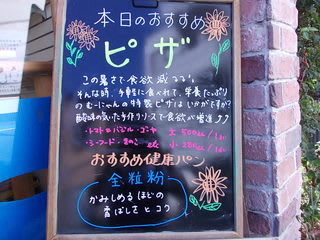 本日のおすすめ
ピザ
この暑さで食欲減るるる。
そんな時、手軽に食べれて、栄養たっぷり
のむーにゃんの特製ピザはいかがですか?
酸味の気いた手作りソースで食欲が増進
・トマト&バジル・ゴーヤ 大500
・シーフード・きのこ etc 小
おすすめ健康パン
全粒粉
かみしめるほどの
香ばしさとコク